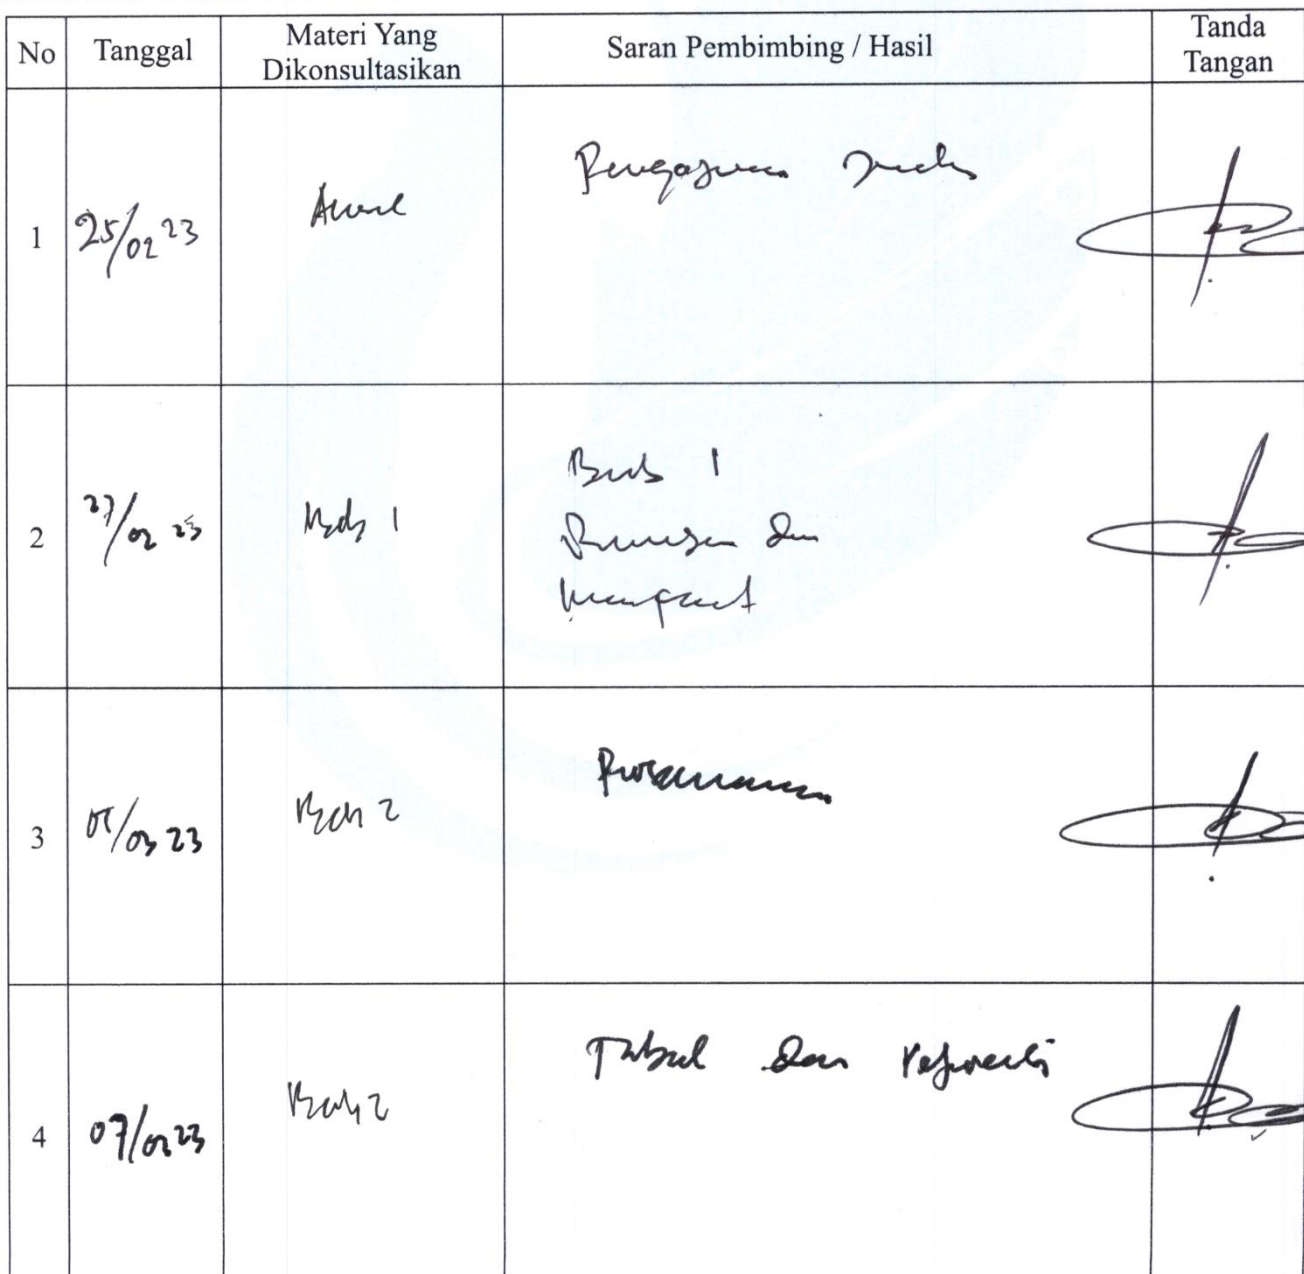 No Tanggal Materi Yang Dikonsultasikan Saran Pembimbing / Hasil Tanda Tangan
1 25/02 23 Awal Pengajuan Judul
2 27/02 23 Bab 1 Bab 1
Rumusan dan
Manfaat
3 /03 23 Bab 2
4 07/03 23 Bab 2 Tabel dan referensi